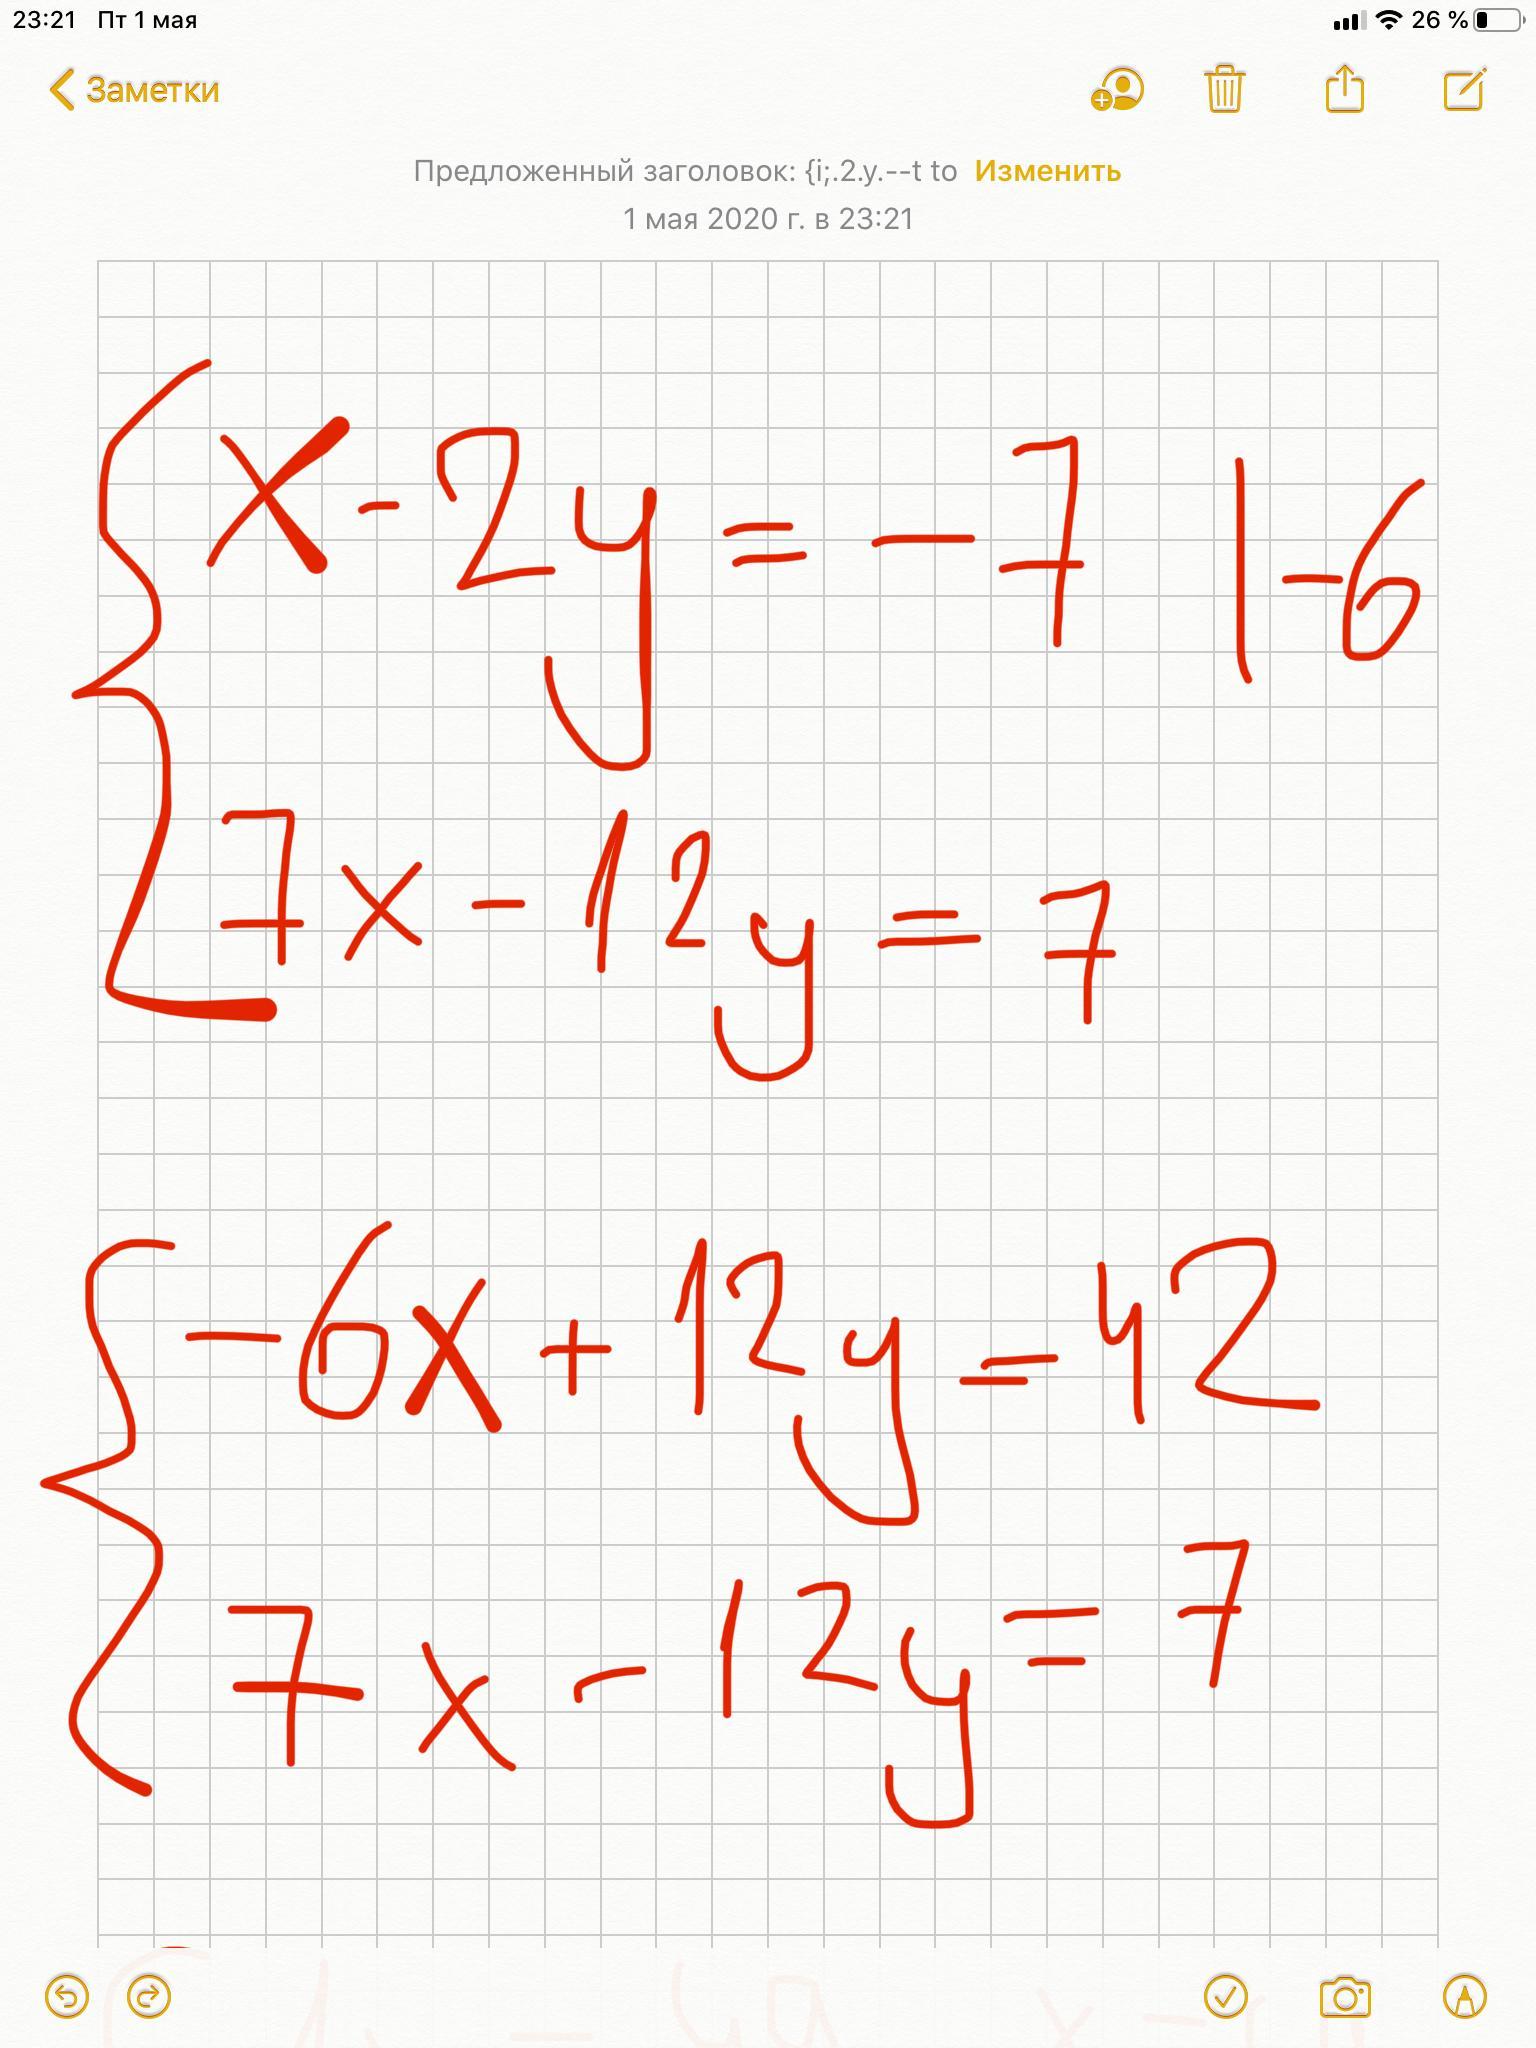 23:21 Пт 1 мая 26 %
Заметки
Предложенный заголовок: {i;.2.y.--t to Изменить
1 мая 2020 г. в 23:21
{ x - 2y = - 7 | -6
7x - 12y = 7
{ -6x + 12y = 42
7x - 12y = 7